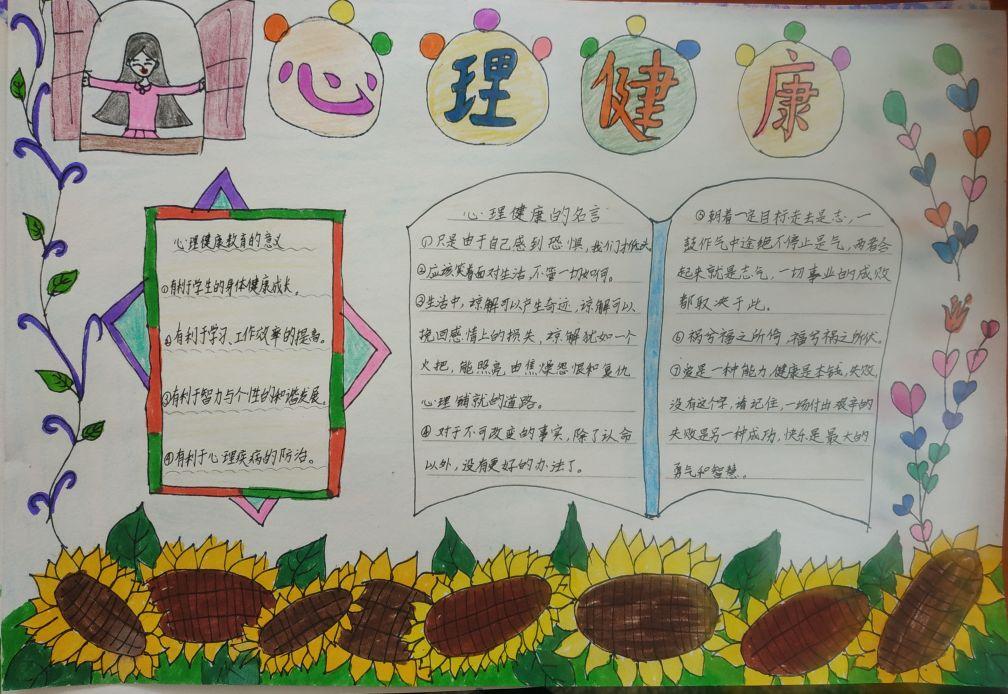 心理健康
心理健康教育的意义
①有利于学生的身体健康成长。
②有利于学习、工作效率的提高。
③有利于智力与个性的和谐发展。
④有利于心理疾病的防治。
心理健康的名言
①只是由于自己感到恐惧,我们才低头
②应该笑着面对生活,不管一切如何。
③生活中,谅解可以产生奇迹,谅解可以
挽回感情上的损失,谅解就如一个
火把,能照亮由焦燥怨恨和复仇
心理铺就的道路。
④对于不可改变的事实,除了认命
以外,没有更好的办法了。
⑤朝着一定目标走去是志,一
鼓作气中途绝不停止是气,两者合
起来就是志气,一切事业的成败
都取决于此。
⑥祸兮福之所倚,福兮祸之所伏。
⑦爱是一种能力,健康是本钱,失败
没有这个字,请记住,一场付出艰辛的
失败是另一种成功,快乐是最大的
勇气和智慧。